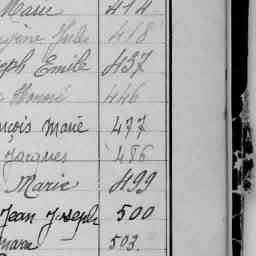 Marie 414
418
Joseph Emile 437
Honoré 446
François Marie 477
Jacques 486
Marie 499
Jean Joseph 500
503